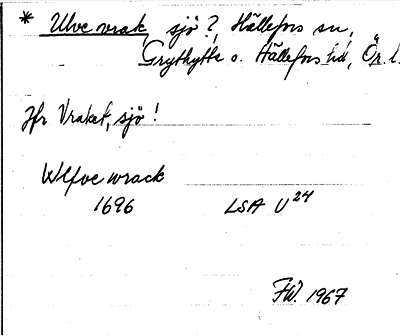 * Ulvevrak sjö?, Hällefors sn,
Grythytte o. Hällefors hd, Ör. l.
Jfr Vraket, sjö!
Wlfvewrack
1696 LSA U24
FW. 1967